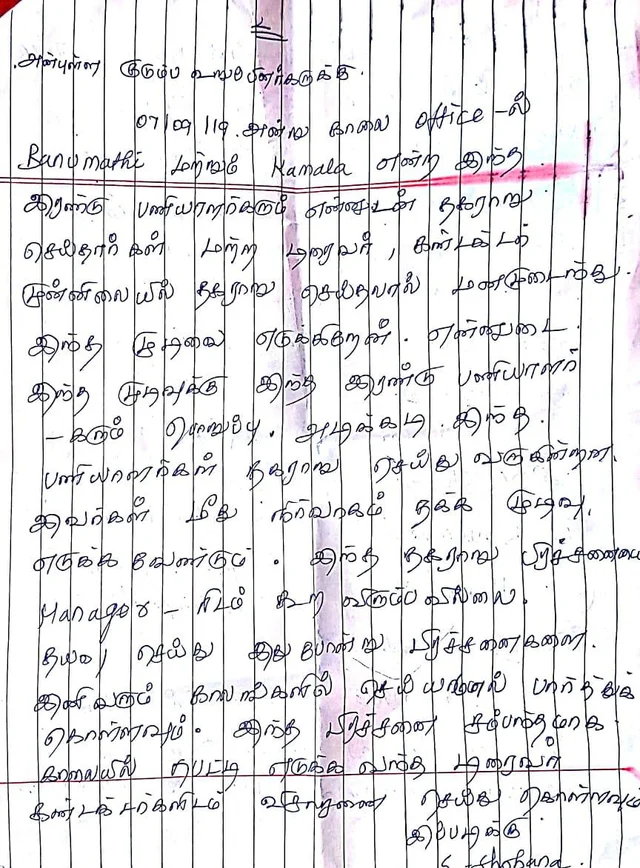 2
அன்புள்ள குடும்ப உறுப்பினர்களுக்கு
07/09/19 அன்று காலை office-ல்
Banumathi மற்றும் Kamala என்ற இந்த
இரண்டு பணியாளர்களும் என்னுடன் தகராறு
செய்தார்கள் மற்ற டிரைவர், கண்டக்டர்
முன்னிலையில் தகராறு செய்தவால் மனமுடைந்து.
இந்த முடிவை எடுக்கிறேன். என்னுடை
இந்த முடிவுக்கு இந்த இரண்டு பணியாளர்
-களும் பொறுப்பு. அடிக்கடி இந்த.
பணியாளர்கள் தகராறு செய்து வருகின்றன.
இவர்கள் மீது நிர்வாகம் தக்க முடிவு
எடுக்க வேண்டும். இந்த தகராறு பிரச்சனையை
Manager-ரிடம் கூற விரும்பவில்லை.
தயவு செய்து இது போன்று பிரச்சனைகளை.
இனிவரும் காலங்களில் செய்யாமல் பார்த்துக்
கொள்ளவும். இந்த பிரச்சனை சம்பந்தமாக
காலையில் பெட்டி எடுக்க வந்த டிரைவர்
கண்டக்டர்களிடம் விசாரணை செய்து கொள்ளவும்
இப்படிக்கு
S. Shobana